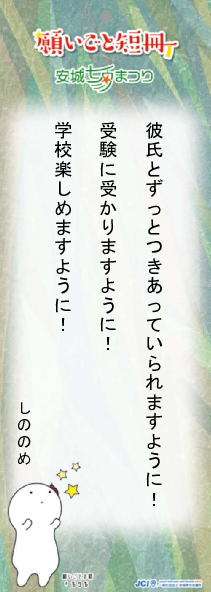 願いごと短冊
安城七夕まつり
彼氏とずっとつきあっていられますように！
受験に受かりますように！
学校楽しめますように！
しののめ
JCI